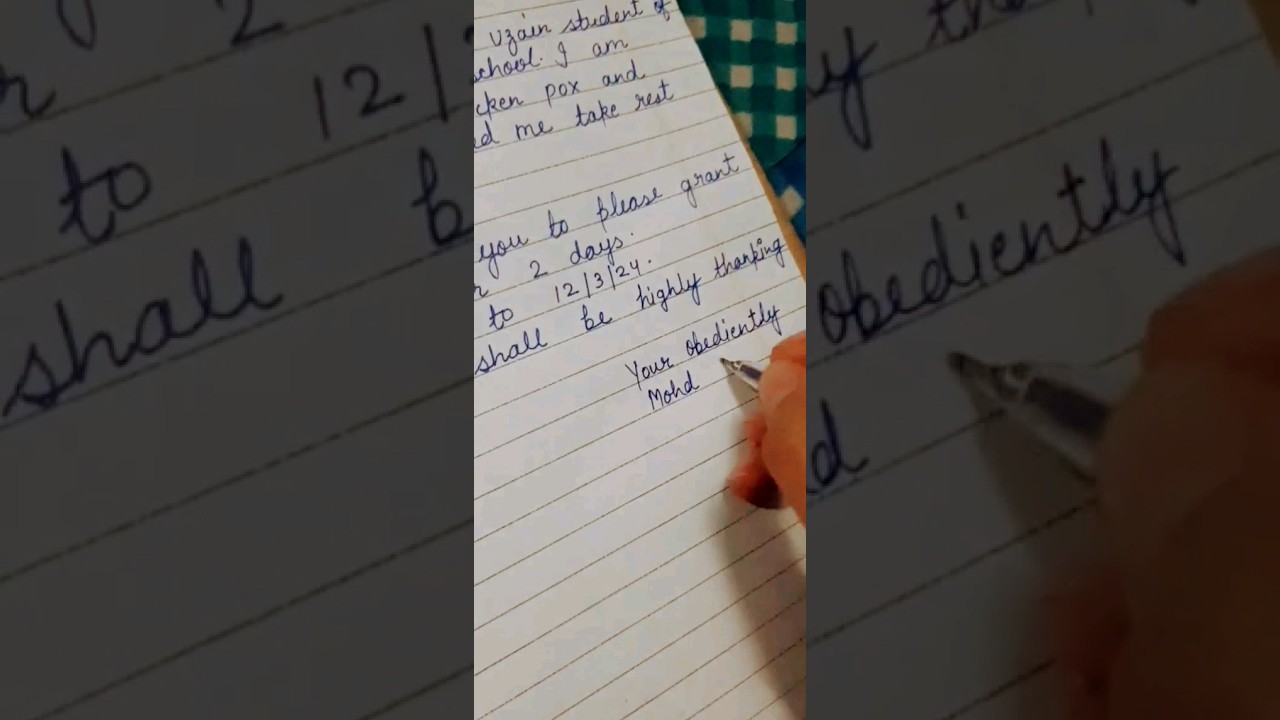 Uzain student of
school. I am
cken pox and
ed me take rest
you to please grant
r 2 days.
to 12/3/24.
shall be highly thanking
Your obediently
Mohd